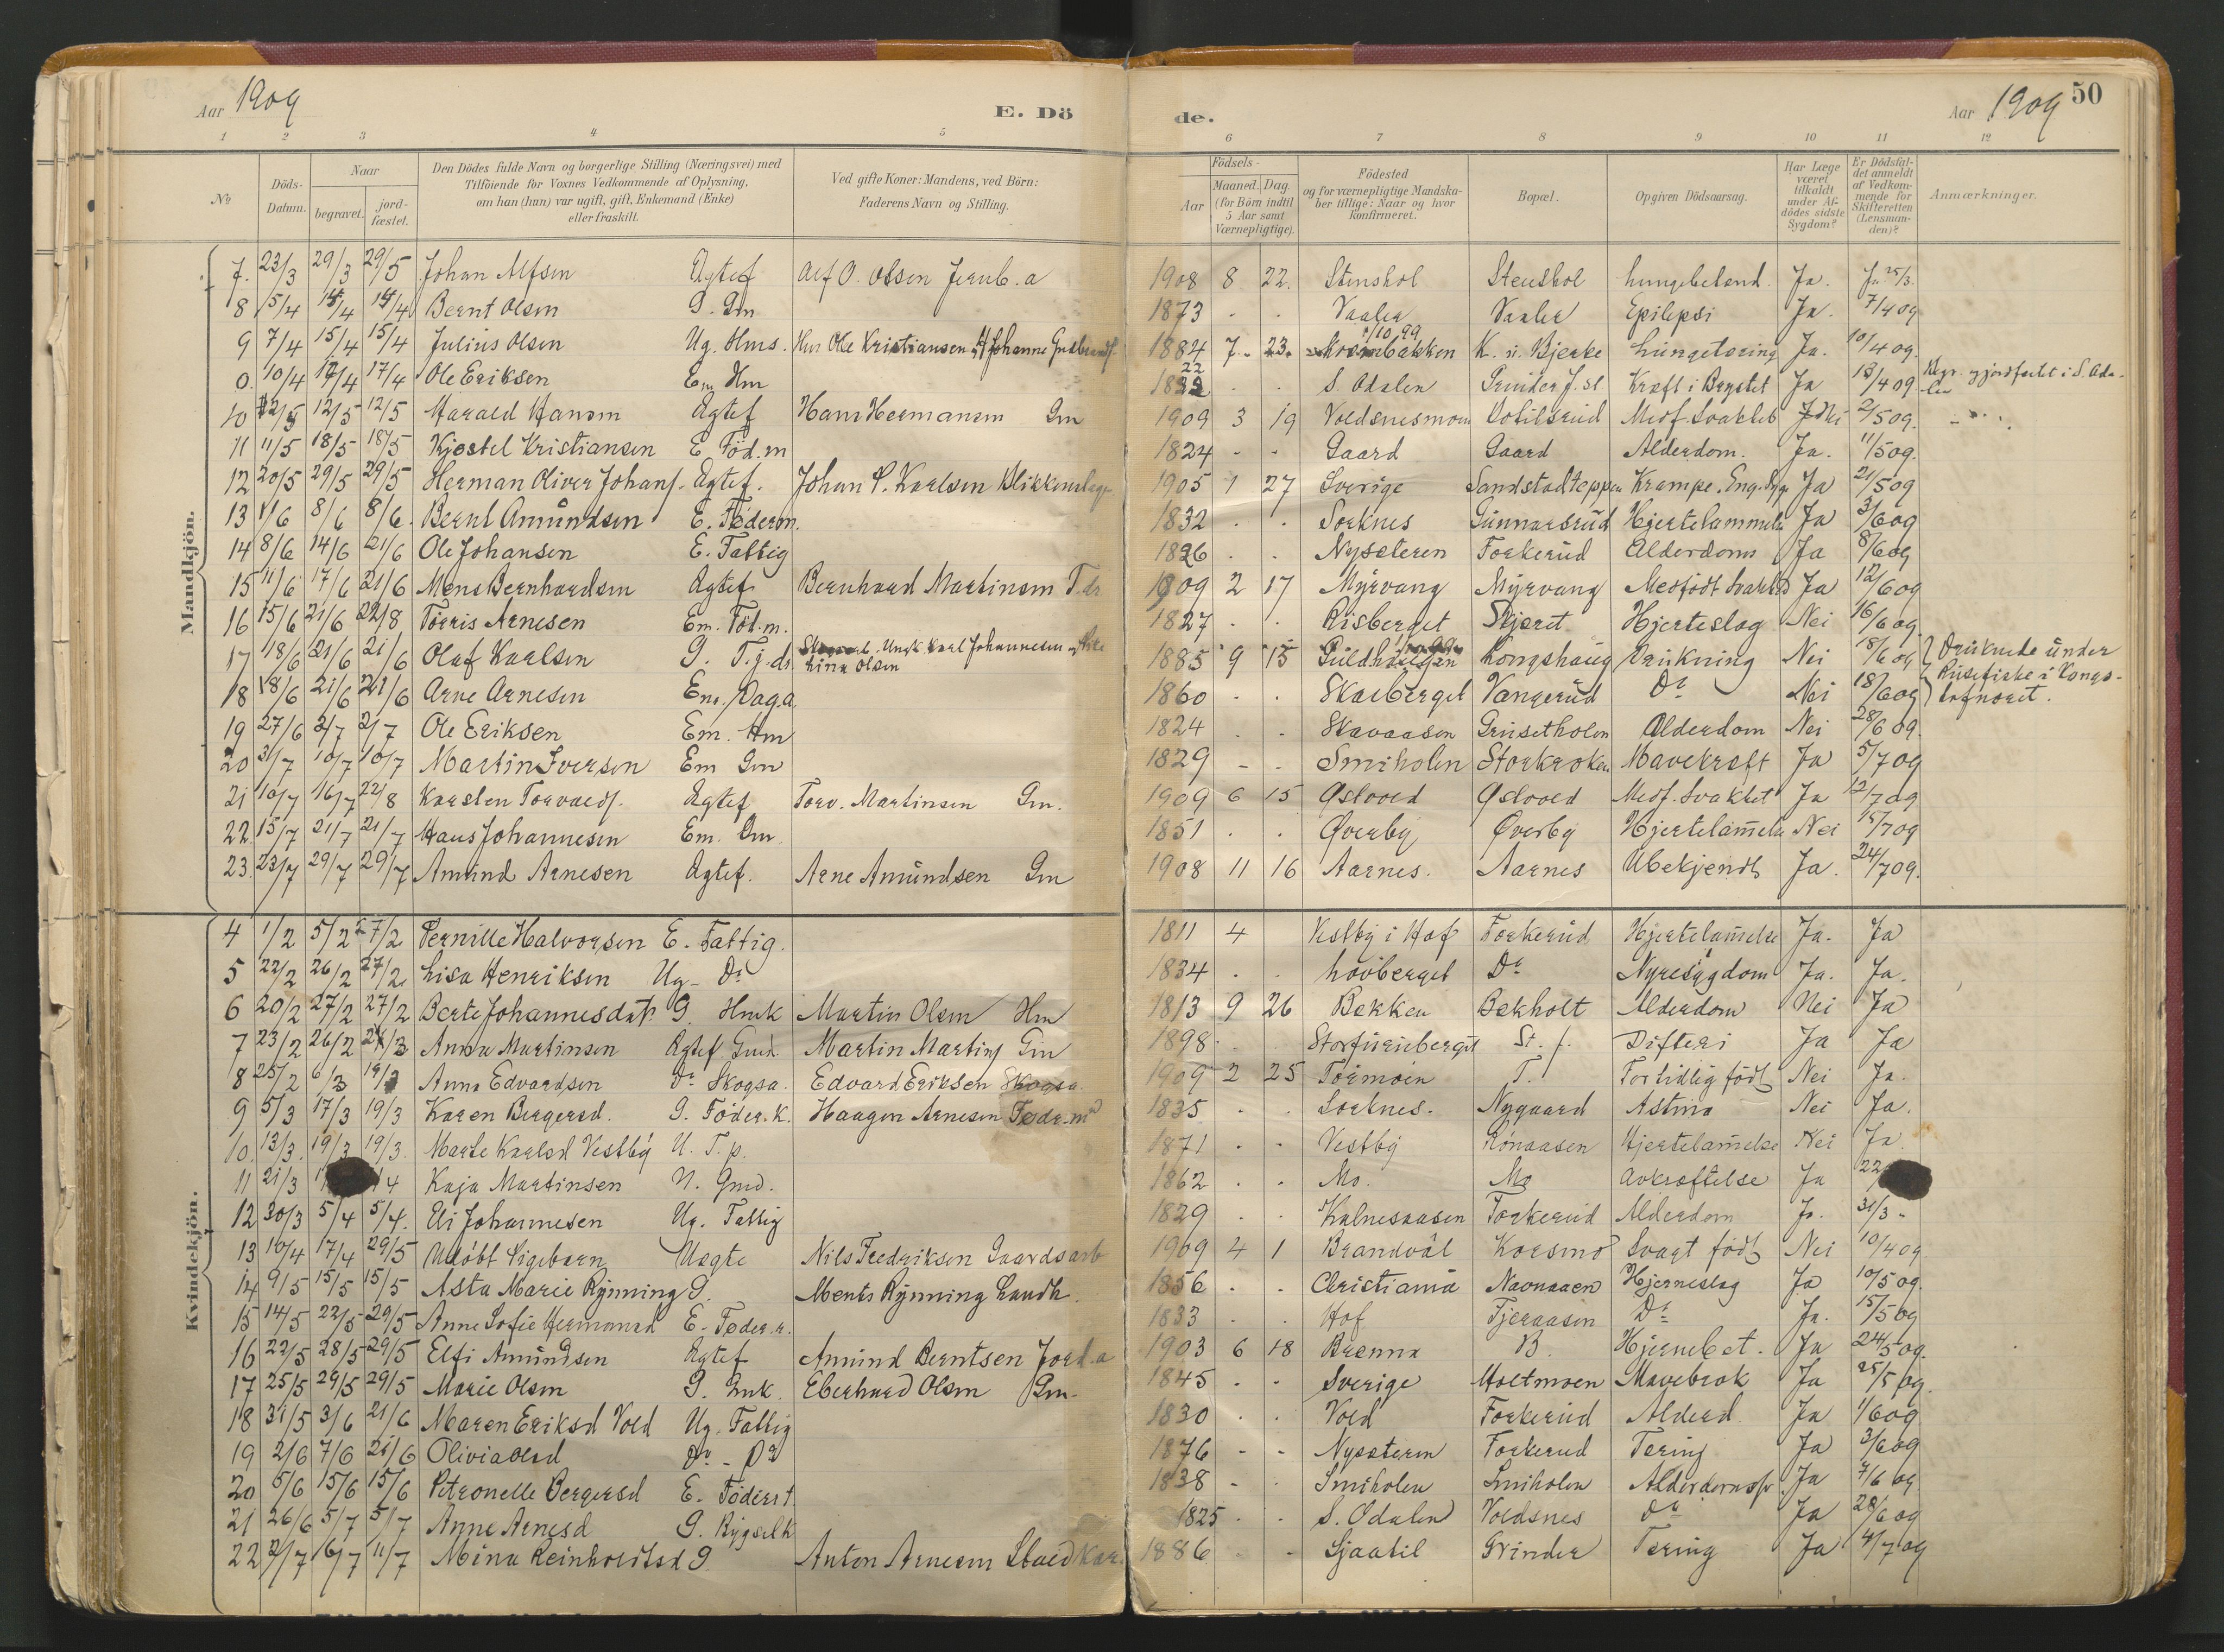 Aar 1909
E. Dö
de.
Aar 1909
50
1 2 3 4 5 6 7 8 9 10 11 12
No
Döds-Datum.
Naar
begravet.
jord-fæstet.
Den Dödes fulde Navn og borgerlige Stilling (Næringsvei) med
Tilföiende for Voxnes Vedkommende af Oplysning,
om han (hun) var ugift, gift, Enkemand (Enke)
eller fraskilt.
Ved gifte Koner: Mandens, ved Börn:
Faderens Navn og Stilling.
Födsels-
Aar
Maaned. Dag.
(for Börn indtil
5 Aar samt
Værnepligtige).
Födested
og for værnepligtige Mandska-
ber tillige: Naar og hvor
Konfirmeret.
Bopæl.
Opgiven Dödsaarsag.
Har Læge
været
tilkaldt
under Af-
dödes sidste
Sygdom?
Er Dödsfal-
det anmeldt
af Vedkom-
mende for
Skifteretten
(Lensman-
den)?
Anmærkninger.
Mandkjön.
7. 23/3 29/3 29/5 Johan Alfsen Ægtef Alf O. Olsen Jernb.a 1908 8 22. Stenshol Stenshol Lungebetænd. Ja. Ja 25/3.
8 5/4 14/4 14/4 Bernt Olsen G. Gm 1873 - - Vaaler Vaaler Epilepsi Ja. 7/4 09
9 7/4 15/4 15/4 Julius Olsen Ug. Hms. Hm Ole Kristiansen og Johanne 1884 7 23 10 99 K. n. Bjerke Lungetæring Ja. 10/4 09.
0. 10/4 17/4 17/4 Ole Eriksen Em Hm 22 S. Odalen Grinder J. st Kræft i Brystet Ja 13/4 09 Begr. jordfæstet i S. Oda-len
10 2/5 12/5 12/5 Harald Hansen Ægtef Hans Hermansen Gm 1909 3 19 Voldsnesmoen Medf. Svakhet 2/5 09.
11 11/5 18/5 18/5 Kjøstel Kristiansen E Föd.m 1824 - - Gaard Gaard Alderdom. Ja. 11/5 09.
12 20/5 29/5 29/5 Herman Oliver Johans. Ægtef. Johan P. Karlsen Blikkenslager 1905 1 27 Sverige Sandstadteppen Krampe. Eng. Syge Ja 21/5 09
13 1/6 8/6 8/6. Bernt Amundsen E. Föderm. 1832 . . Sorknes Gunnarsrud Hjertelammelse Ja 3/6 09
14 8/6 14/6 21/6 Ole Johansen E. Fattig 1826 . . Nyseteren Forkerud Alderdom Ja 8/6 09
15 11/6 17/6 21/6 Mens Bernhardsen Ægtef Bernhard Martinsen T.dr 1909 2 17 Myrvang Myrvang Medfödt Svakhed Ja 12/6 09
16 15/6 21/6 22/8 Törris Arnesen Em. Föd.m. 1827 . . Risberget Skjeret Hjerteslag Nei 16/6 09
17 18/6 21/6 21/6 Olaf Karlsen G. T.j.dr. Ungk Karl Johannesen og Lina Olsen 1885 9 15 Guldhaugen Kongshaug Drukning Nei 18/6 09 } Druknede under
18 18/6 21/6 21/6 Arne Arnesen Em. Dag.a. 1860 . . Skaeberget Vangerud Do Nei 18/6 09 } Rusefiske i Kongs-
19 27/6 2/7 2/7 Ole Eriksen Em. Hm 1824 . . Skavaasen Grusetholen Alderdom Nei 28/6 09.
20 3/7 10/7 10/7 Martin Iversen Em Gm 1829 - - Smiholen Storkroken Mavekræft Ja 5/7 09
21 10/7 16/7 22/8 Karsten Torvalds. Ægtef Torv. Martinsen Gm. 1909 6 15 Østvold Østvold Medf. Svakhet Ja 12/7 09
22 15/7 21/7 21/7 Hans Johannesen Em. Gm 1851 . . Øverby Øverby Hjertelammelse Nei 15/7 09
23. 23/7 29/7 29/7 Amund Arnesen Ægtef. Arne Amundsen Gm 1908 11 16 Aarnes. Aarnes Ubekjendt Ja. 24/7 09.
Kvindekjön.
4 1/2 5/2 27/2 Pernille Halvorsen E. Fattig. 1811 4 Vestby i Hof Forkerud Hjertelammelse Ja. Ja
5 22/2 26/2 27/2 Lisa Henriksen Ug. Do 1834 . . Lövberget Do Nyresygdom Ja. Ja.
6 20/2 27/2 27/2 Berte Johannesdatr. G. Hmk Martin Olsen Hm 1813 9 26 Bekken Bekholt Alderdom Nei Ja
7 23/2 26/2 21/3 Anna Martinsen Ægtef Gmd. Martin Martins Gm 1898 . . Storfuruberget St. f. Difteri Ja Ja
8 25/2 6/3 19/3 Anna Edvardsen Do Skogsa. Edvard Eriksen Skogsa. 1909 2 25 Tormoen T. For tidlig födt Nei Ja.
9 5/3 17/3 19/3 Karen Bergersd. G. Föder.k. Haagen Arnesen Födr.m 1835 . . Sorknes. Nygaard Astma Nei Ja.
10. 13/3. 19/3 19/3. Marte Karlsd Vestby U. T.p. 1871 . . Vestby Rönaasen Hjertelammelse Nei Ja
11 21/3 /4 Kaja Martinsen U. Gmd. 1862 . . Mo. Mo Avkræftelse Ja 22
12 30/3 5/4 5/4. Eli Johannesen Ug. Fattig 1829 . . Kalnesaasen Forkerud Alderdom Ja. 31/3
13 10/4 17/4 29/5 Udöbt Pigebarn Uægte Nils Fredriksen Gaardsarb 1909 4 1 Brandvål Korsmo Svagt födt Nei 10/4 09
14 9/5 15/5 15/5 Asta Marie Rynning G. Ments Rynning Landh. 1856 . . Christiania Hjerneslag Ja 10/5 09.
15 14/5 22/5 29/5 Anne Sofie Hermansd E. Föder.r. 1833 . . Hof Fjeraasen Do Ja. 15/5 09
16 22/5 28/5 29/5 Elfi Amundsen Ægtef Amund Berntsen Jord.a 1903 6 18 Brenna B. Hjernebet. Ja 24/5 09.
17 25/5 29/5 29/5 Marie Olsen G. Gmk. Eberhard Olsen Gm. 1845 . . Sverige Holtmoen Mavebrok Ja 25/5 09.
18 31/5 3/6 21/6 Maren Eriksd Vold Ug. Fattig 1830 . . Vold Forkerud Alderd. Ja 1/6 09
19 2/6 7/6 21/6 Olivia Olsd Do - Do 1876 - - Nyseteren Forkerud Tæring Ja 3/6 09
20 5/6 15/6 15/6 Petronelle Bergersd E. Föderr. 1838 - . Smiholen Smiholen Ja 7/6 09
21 26/6 5/7 5/7 Anne Arnesd G. 1825 . . S. Odalen Voldsnes Do Ja 28/6 09
22 2/7 6/7 11/7 Mina Reinholdtsd G. Anton Arnesen Staldkar. 1886 - - Sjaatil Grinder Tæring Ja 4/7 09